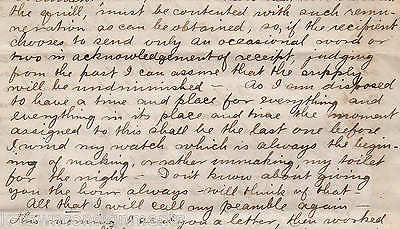 the quill, must be contented with such remu-
neration as can be obtained, so, if the recipient
chooses to send only an occasional word or
two in acknowledgement of receipt, judging
from the past I can assume that the supply
will be undiminished — As I am disposed
to have a time and place for everything and
everything in its place and time the moment
assigned to this shall be the last one before
I wind my watch which is always the begin-
ning of making, or rather unmaking, my toilet
for the night — Don't know about giving
you the hour always — will think of that —
All that I will call my peamble again —
This morning I sent you a letter, then worked